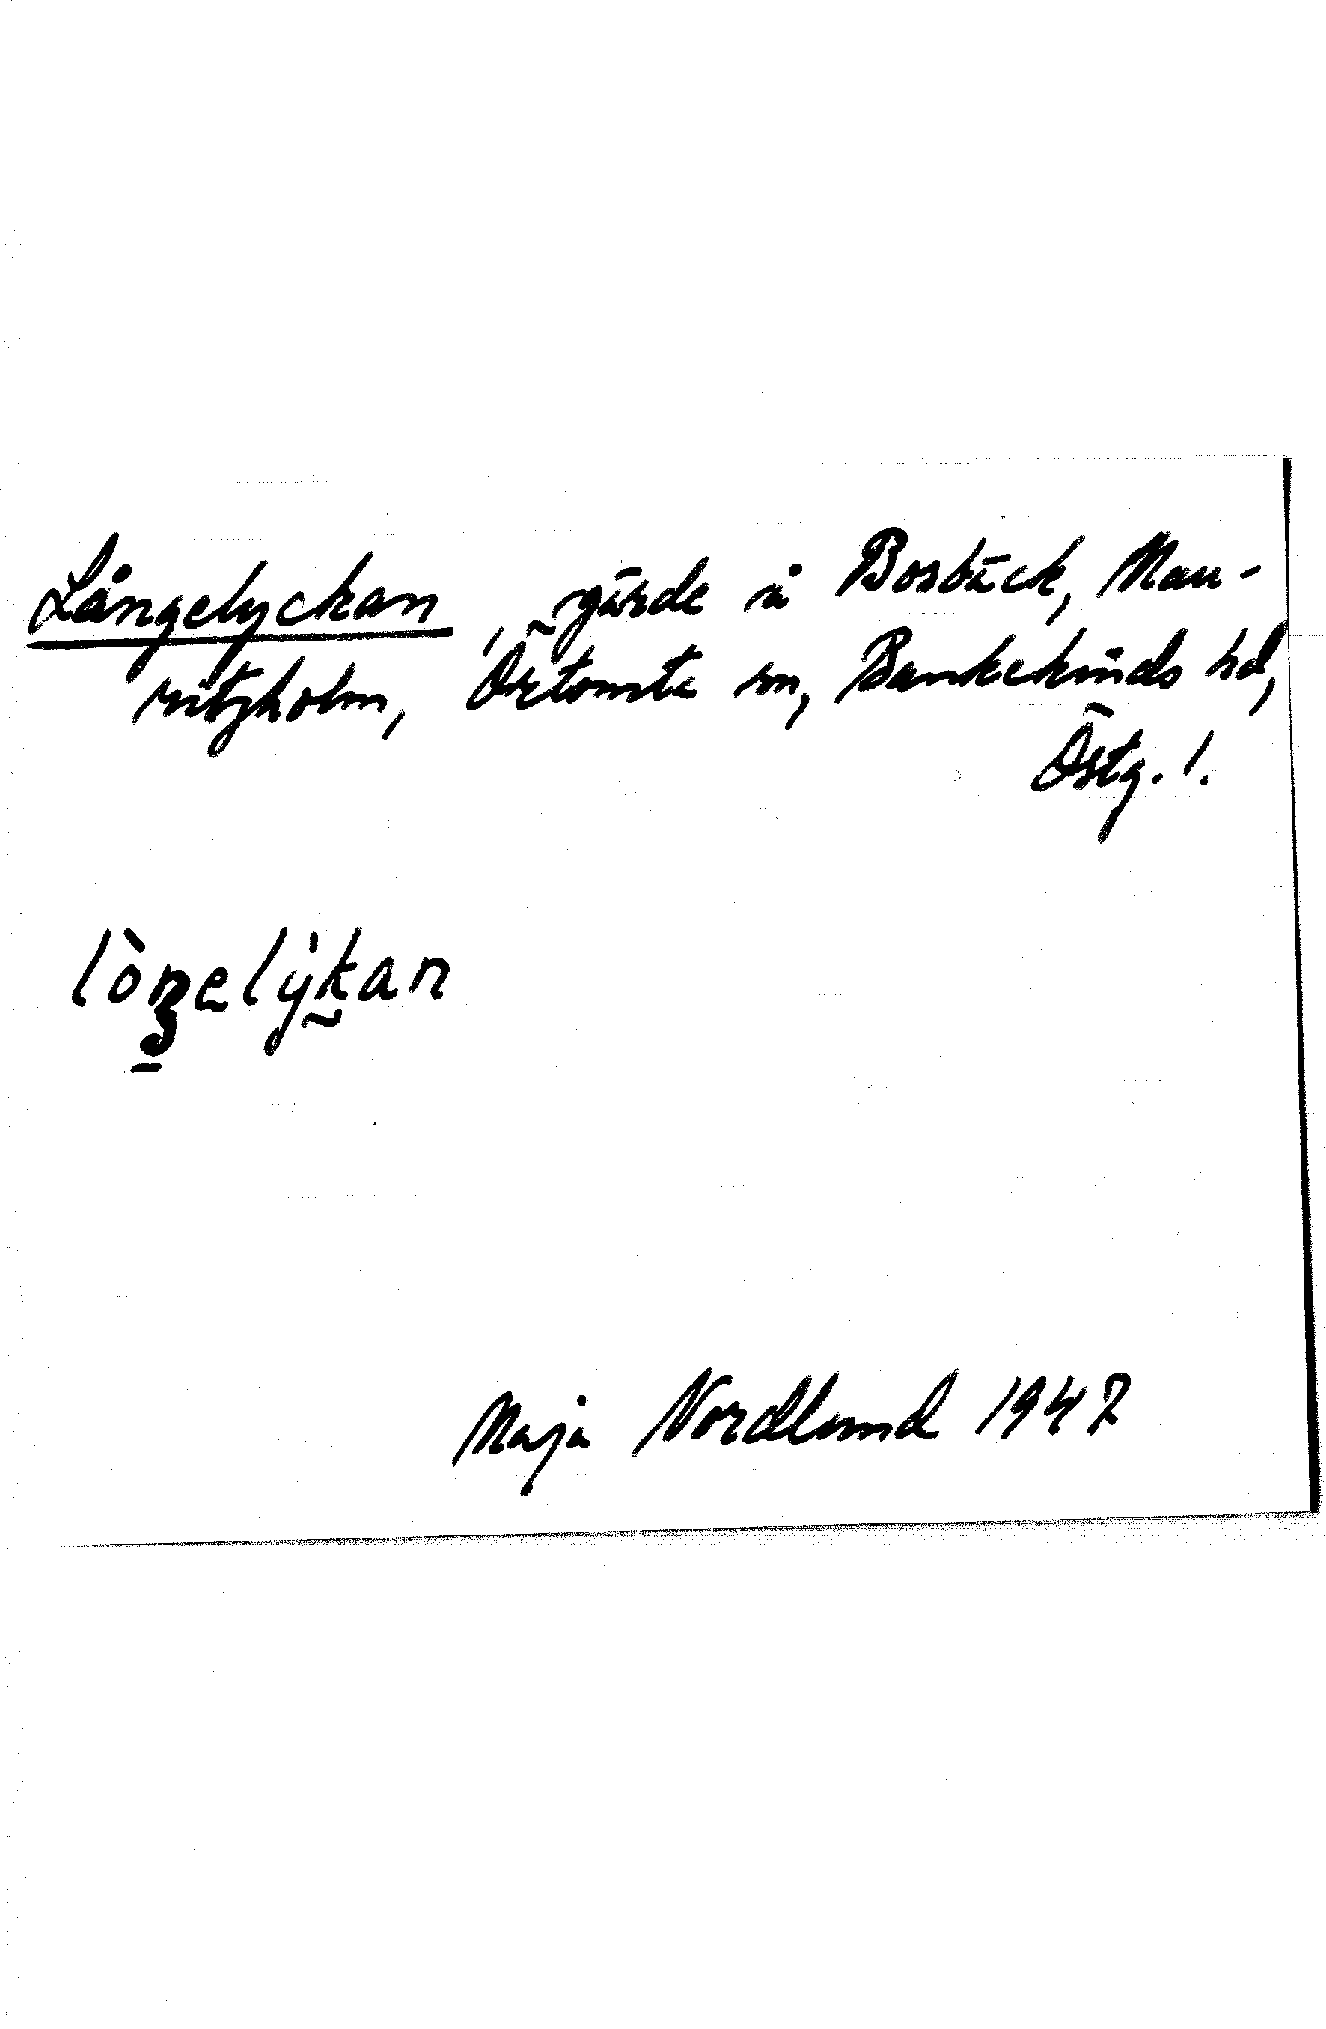 Långelyckan, gärde å Bosbäck, Mau-
ritzholm, Örtomta sn, Bankekinds hd,
Östg. l.
lòŋelỳkan
Maja Nordlund 1947